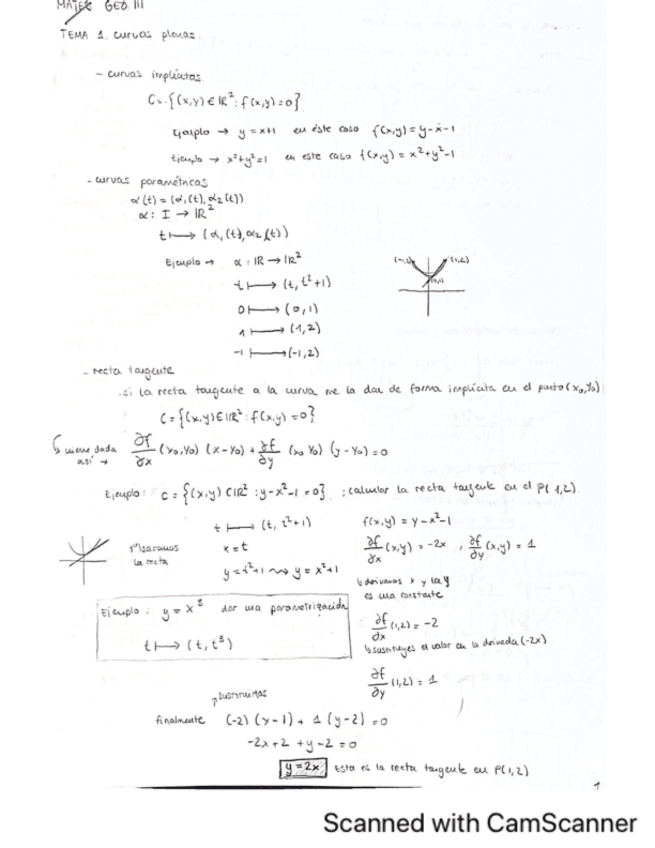 MATES GEO III
TEMA 1. curvas planas.
- curvas implícitas
C = {(x,y) ∈ IR² : f(x,y) = 0}
Ejemplo → y = x+1 en éste caso f(x,y) = y-x-1
Ejemplo → x²+y²=1 en este caso f(x,y) = x²+y²-1
- curvas paramétricas
α(t) = (α₁(t), α₂(t))
α : I → IR²
t ⟼ (α₁(t), α₂(t))
Ejemplo → α : IR → IR²
t ⟼ (t, t²+1)
0 ⟼ (0,1)
1 ⟼ (1,2)
-1 ⟼ (-1,2)
(1,2)
- recta tangente
.si la recta tangente a la curva me la dan de forma implícita en el punto (x₀,y₀)
C = {(x,y) ∈ IR² : f(x,y) = 0}
↳ viene dada así → ∂f/∂x (x₀,y₀) (x-x₀) + ∂f/∂y (x₀,y₀) (y-y₀) = 0
Ejemplo: C = {(x,y) C IR² : y-x²-1 = 0} ; calcular la recta tangente en el P(1,2)
t ⟼ (t, t²+1)
x = t
y = t²+1 ⇝ y = x²+1
sacamos
la recta
f(x,y) = y-x²-1
∂f/∂x (x,y) = -2x ; ∂f/∂y (x,y) = 1
↳ derivamos x y la y
es una constante
∂f/∂x (1,2) = -2
↳ sustituyes el valor en la derivada (-2x)
∂f/∂y (1,2) = 1
Ejemplo : y = x³ dar una parametrización
t ⟼ (t, t³)
sustituimos
finalmente (-2) (x-1) + 1 (y-2) = 0
-2x+2 +y-2 = 0
y = 2x Esta es la recta tangente en P(1,2)
1
Scanned with CamScanner